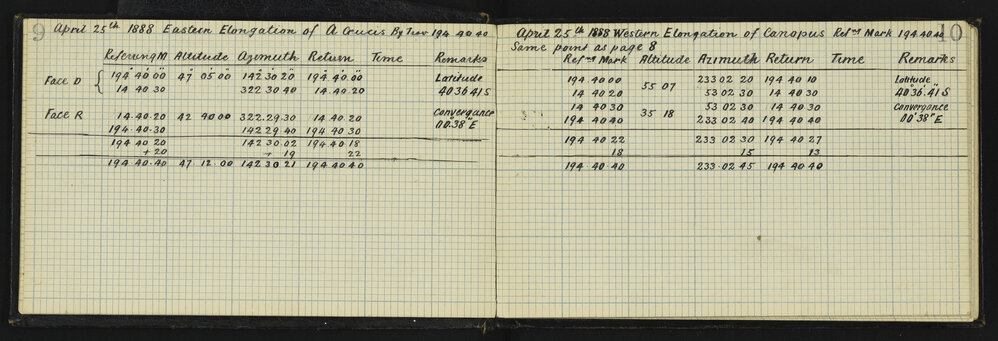 9 April 25th 1888 Eastern Elongation of A Crucis By Trav 194.40.40
Refering M Altitude Azumuth Return Time Remarks
Face D { 194° 40' 00" 47° 05' 00" 142° 30' 20" 194° 40' 00" Latitude
14 40 30 322 30 40 14.40.20 40° 36' 41" S
Face R 14.40.20 42 90 00 322.29.30 14 40.20 Convergance
194.40.30 142 29 40 194 40 30 00' 38" E
194 40 20 142.30 02 194.40.18
+ 20 + 19 22
194.40.40 47 12 00 142 30 21 194 40 40
April 25th 1888 Western Elongation of Canopus Refng Mark 194.40.40 10
Same point as page 8
Refng Mark Altitude Azimuth Return Time Remarks
194 40 00 55 07 233 02 20 194 40 10 Latitude
14 40 20 53 02 30 14 40 30 40° 36' 41" S
14 40 30 35 18 53 02 30 14 40 30 Convergance
194 40 40 233 02 40 194 40 40 00' 38" E
194 40 22 233 02 30 194 40 27
18 15 13
194 40 40 233 02 45 194 40 40